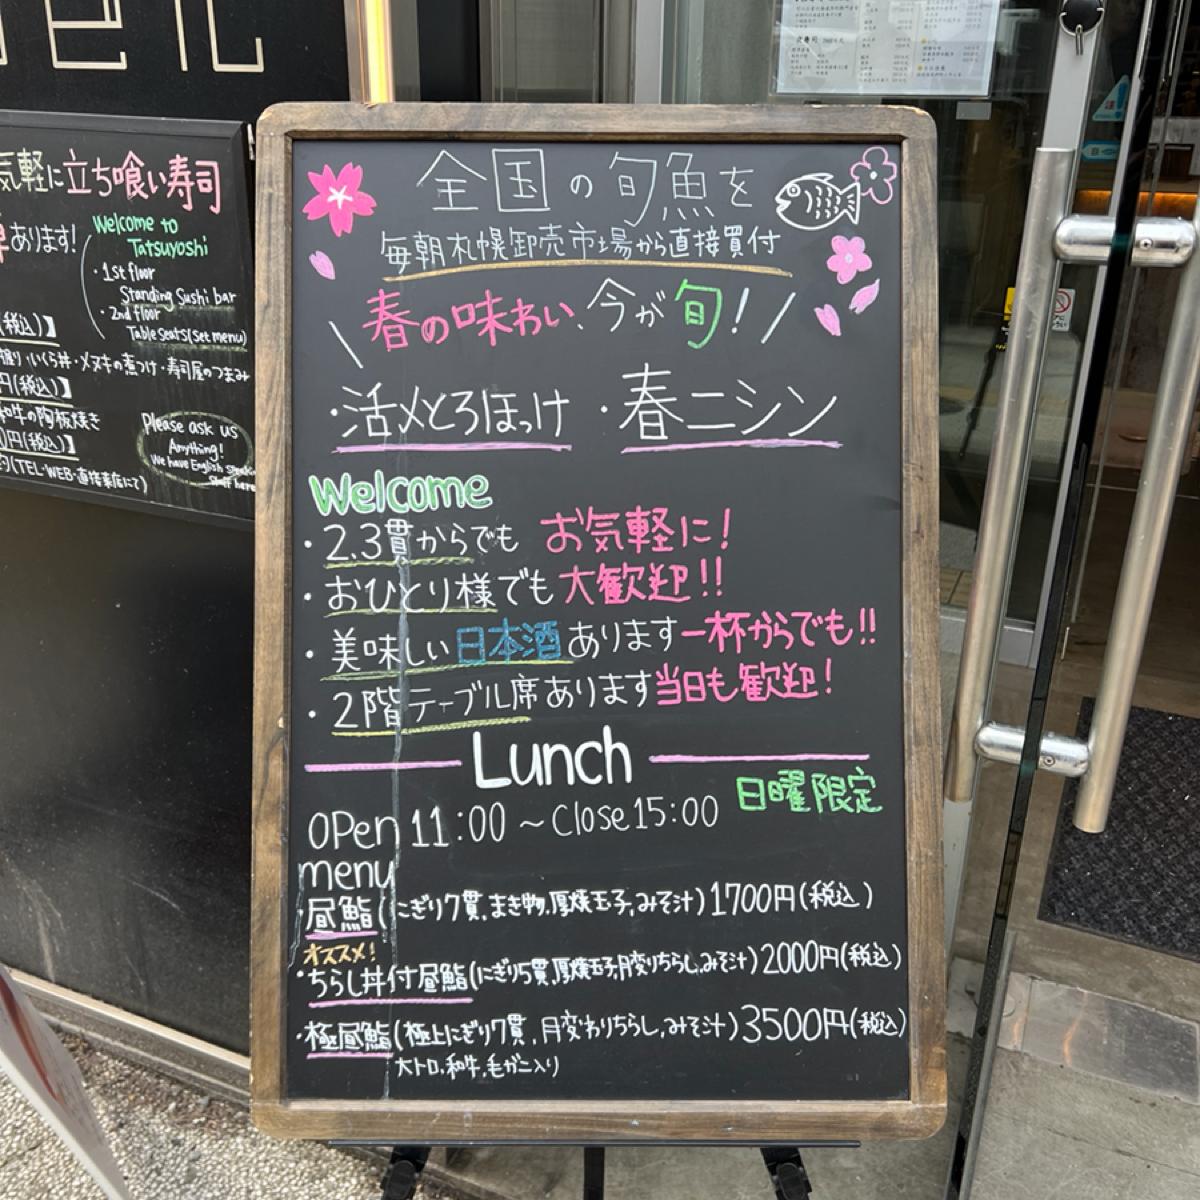 気軽に立ち喰い寿司
あります!
Welcome to
Tatsuyoshi
・1st floor
Standing Sushi bar
・2nd floor
Table seats(set menu)
(税込)】
握り・いくら丼・メヌキの煮つけ・寿司屋のつまみ
円(税込)】
和牛の陶板焼き
0円(税込)】
(TEL・WEB・直接来店にて)
Please ask us
Anything!
We have English
Staff here
全国の旬魚を
毎朝札幌卸売市場から直接買付
\春の味わい、今が旬!/
・活〆とろほっけ ・春ニシン
Welcome
・2.3貫からでも お気軽に!
・おひとり様でも大歓迎!!
・美味しい日本酒あります一杯からでも!!
・2階テーブル席あります当日も歓迎!
Lunch
日曜限定
OPen 11:00 ~ Close 15:00
menu
・昼鮨(にぎり7貫,まき物,厚焼玉子,みそ汁)1700円(税込)
オススメ!
・ちらし丼付昼鮨(にぎり5貫,厚焼玉子,月変りちらし,みそ汁)2000円(税込)
・極昼鮨(極上にぎり7貫,月変わりちらし,みそ汁)3500円(税込)
大トロ,和牛,毛ガニ入り